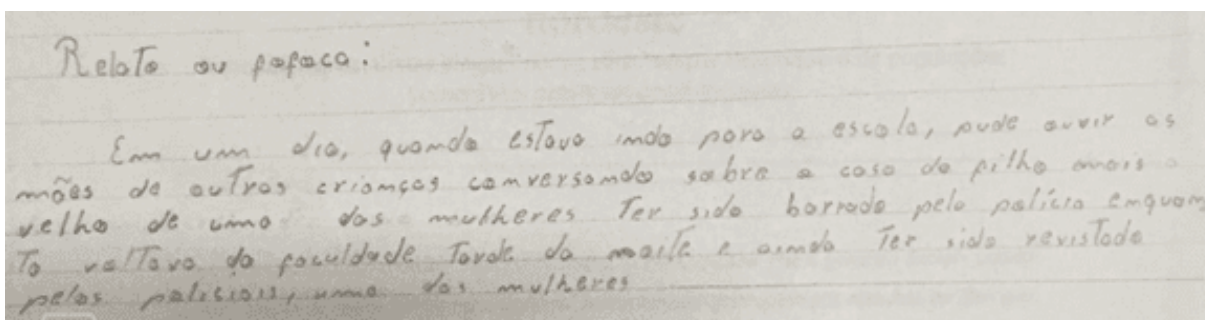 Relato ou fofoca:
Em um dia, quando estava indo para a escola, pude ouvir as
mães de outras crianças conversando sobre o caso do filho mais
velho de uma das mulheres Ter sido barrado pela polícia enquan
To voltava da faculdade Tarde da noite e ainda Ter sido revistado
pelos policiais, uma das mulheres